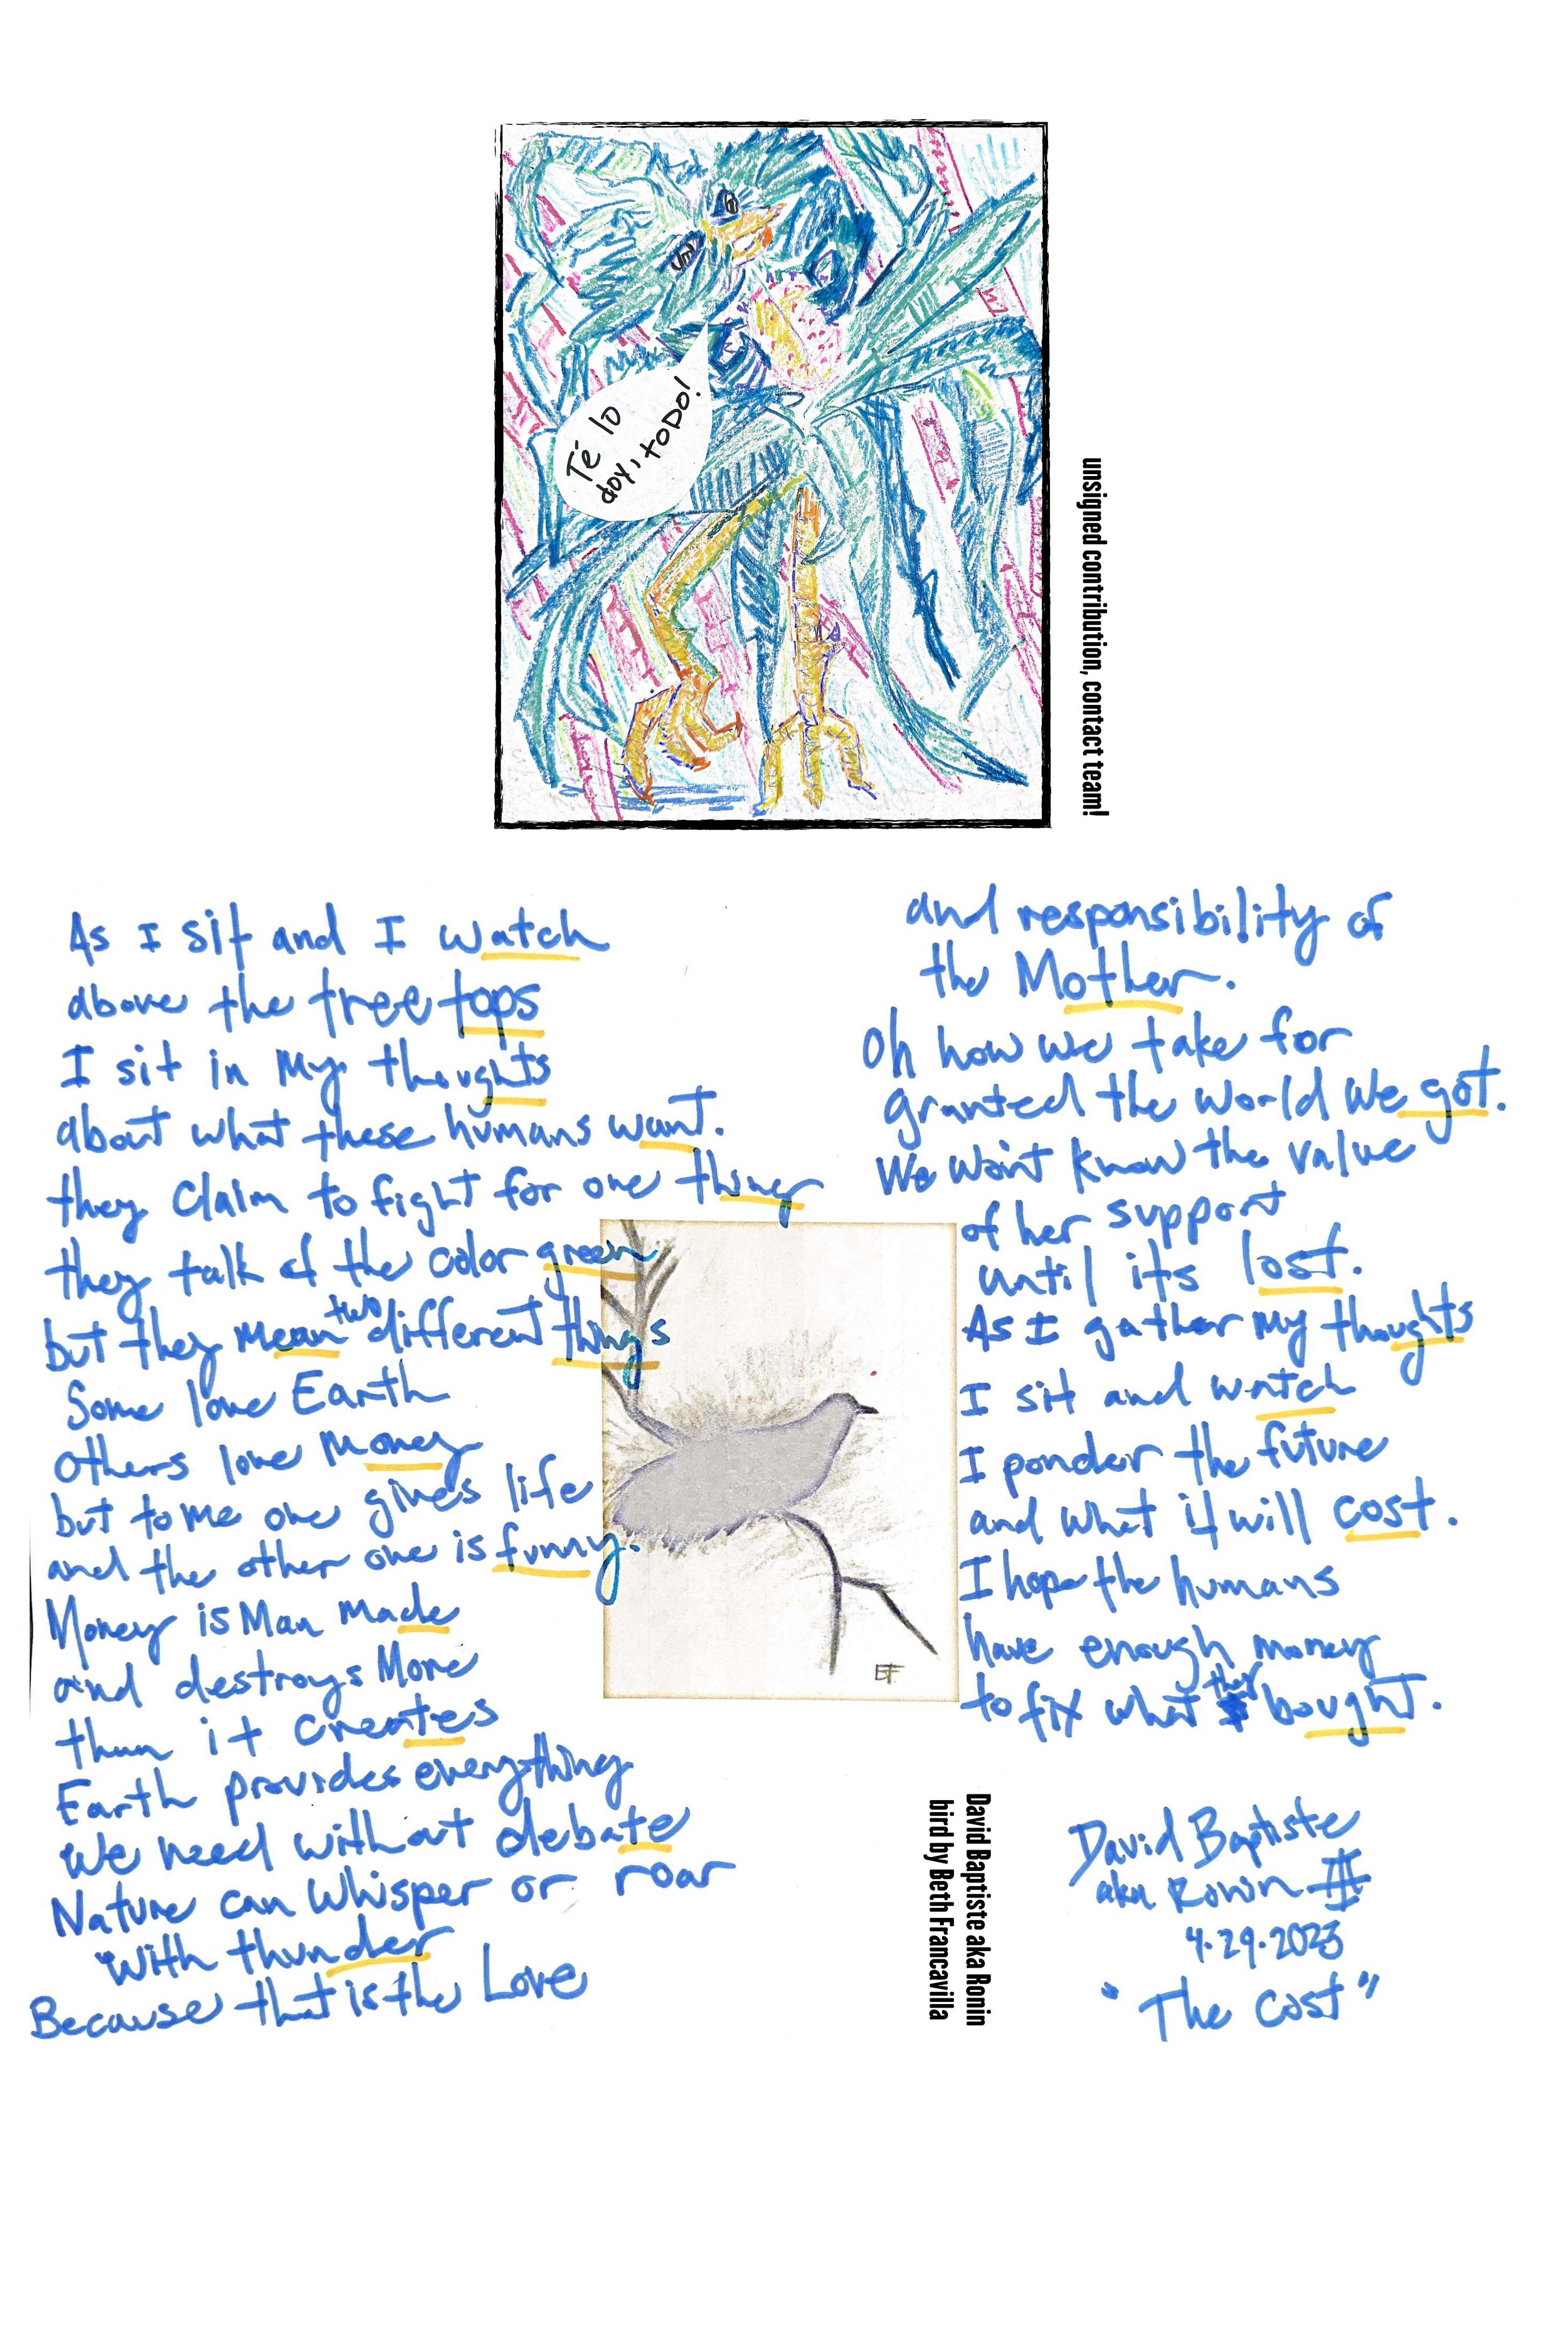 Té lo
doy, todo!
unsigned contribution, contact team!
As I sit and I watch
above the tree tops
I sit in my thoughts
about what these humans want.
they claim to fight for one thing
they talk of the color green
but they mean two different things
Some love Earth
others love money
but to me one gives life
and the other one is funny.
Money is Man made
and destroys More
than it creates
Earth provides everything
We need without debate
Nature can whisper or roar
with thunder
Because that is the Love
and responsibility of
the Mother.
Oh how we take for
granted the world we got.
We won't know the value
of her support
until its lost.
As I gather my thoughts
I sit and watch
I ponder the future
and what it will cost.
I hope the humans
have enough money
to fix what they bought.
EF
David Baptiste aka Ronin
bird by Beth Francavilla
David Baptiste
aka Ronin III
4.29.2023
"The Cost"